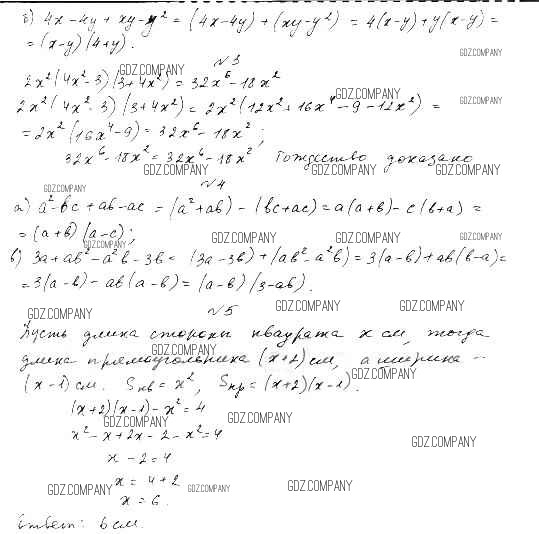 б) 4x - 4y + xy - y² = (4x - 4y) + (xy - y²) = 4(x - y) + y(x - y) =
= (x - y)(4 + y).
GDZ.COM
№3
GDZ.COMPANY
2x²(4x² - 3)(3 + 4x²) = 32x⁶ - 18x²
GDZ.COMPANY
2x²(4x² - 3)(3 + 4x²) = 2x²(12x² + 16x⁴ - 9 - 12x²) =
GDZ.COMPANY
= 2x²(16x⁴ - 9) = 32x⁶ - 18x²;
32x⁶ - 18x² = 32x⁶ - 18x² Тождество доказано
GDZ.COMPANY GDZ.COMPANY GDZ.COMPANY
№4
GDZ.COMPANY
а) a² - bc + ab - ac = (a² + ab) - (bc + ac) = a(a + b) - c(b + a) =
= (a + b)(a - c);
GDZ.COMPANY GDZ.COMPANY GDZ.COMPANY GDZ.COMPANY
в) 3a + ab² - a²b - 3b = (3a - 3b) + (ab² - a²b) = 3(a - b) + ab(b - a) =
= 3(a - b) - ab(a - b) = (a - b)(3 - ab).
GDZ.COMPANY GDZ.COMPANY GDZ.COMPANY
№5
Пусть длина стороны квадрата x см, тогда
GDZ.COMPANY
длина прямоугольника (x + 2) см, а ширина -
(x - 1) см. Sкв = x², Sпр = (x + 2)(x - 1).
GDZ.COMPANY
(x + 2)(x - 1) - x² = 4
GDZ.COMPANY GDZ.COMPANY
x² - x + 2x - 2 - x² = 4
GDZ.COMPANY
x - 2 = 4
x = 4 + 2
GDZ.COMPANY GDZ.COMPANY GDZ.COMPANY
x = 6.
Ответ: 6 см.